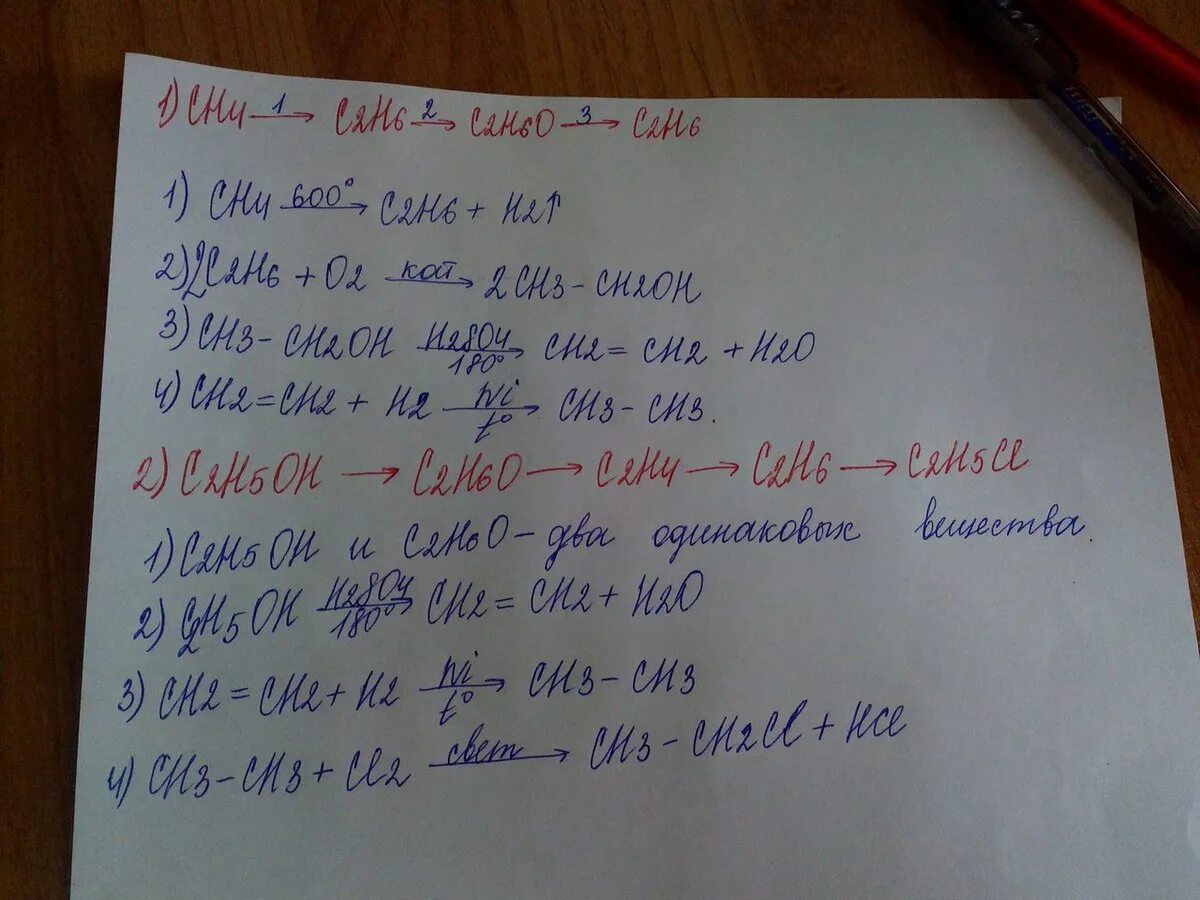 1) CH4 —1→ C2H6 —2→ C2H6O —3→ C2H6
1) CH4 —600°→ C2H6 + H2↑
2) 2C2H6 + O2 —кат→ 2CH3 – CH2OH
3) CH3 – CH2OH —H2SO4 180°→ CH2 = CH2 + H2O
4) CH2 = CH2 + H2 —Ni t°→ CH3 – CH3.
2) C2H5OH → C2H6O → C2H4 → C2H6 → C2H5Cl
1) C2H5OH и C2H6O – два одинаковых вещества.
2) C2H5OH —H2SO4 180°→ CH2 = CH2 + H2O
3) CH2 = CH2 + H2 —Ni t°→ CH3 – CH3
4) CH3 – CH3 + Cl2 —свет→ CH3 – CH2Cl + HCl